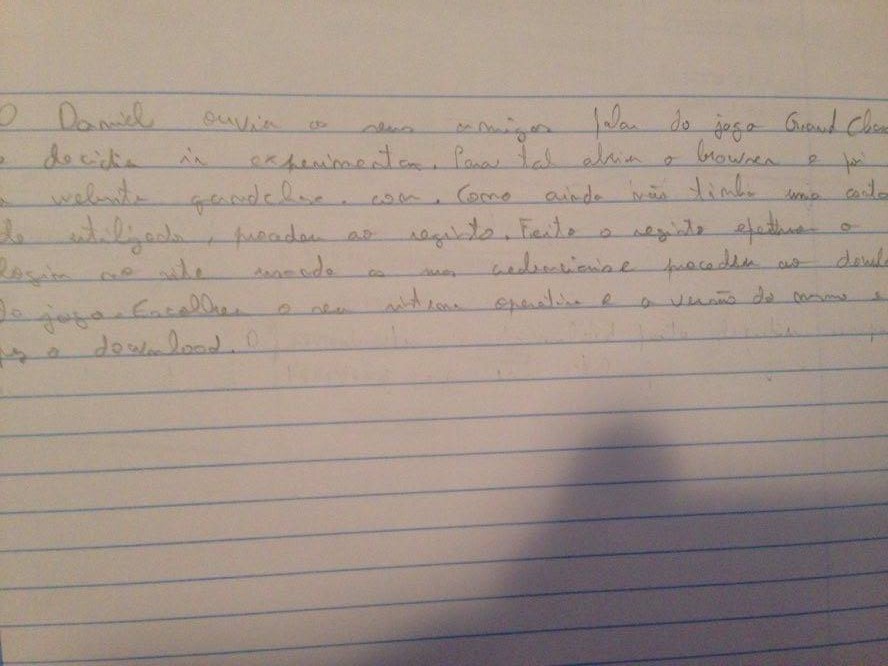 O Daniel ouviu os seus amigos falar do jogo Grand Chas
e decidiu ir experimentar. Para tal abriu o browser e foi
website .com. Como ainda não tinha uma conta
de utilizado, procedeu ao registo. Feito o registo efectuou o
login no site usando as suas credenciais e procedeu ao downl
do jogo. Escolheu o seu sistema operativo e a versão do mesmo e
fez o download. O